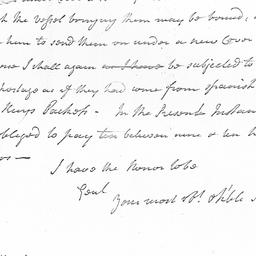 the vessel bringing them may be bound,
here to send them on under a new Cover
I shall again as I have be subjected to
Postage as if they had come from Spanish
Kings Packets - In the Presente Instan
obliged to pay ten between nine & ten h
I have the Honor to be
Gent
Your most Ob.t H'ble